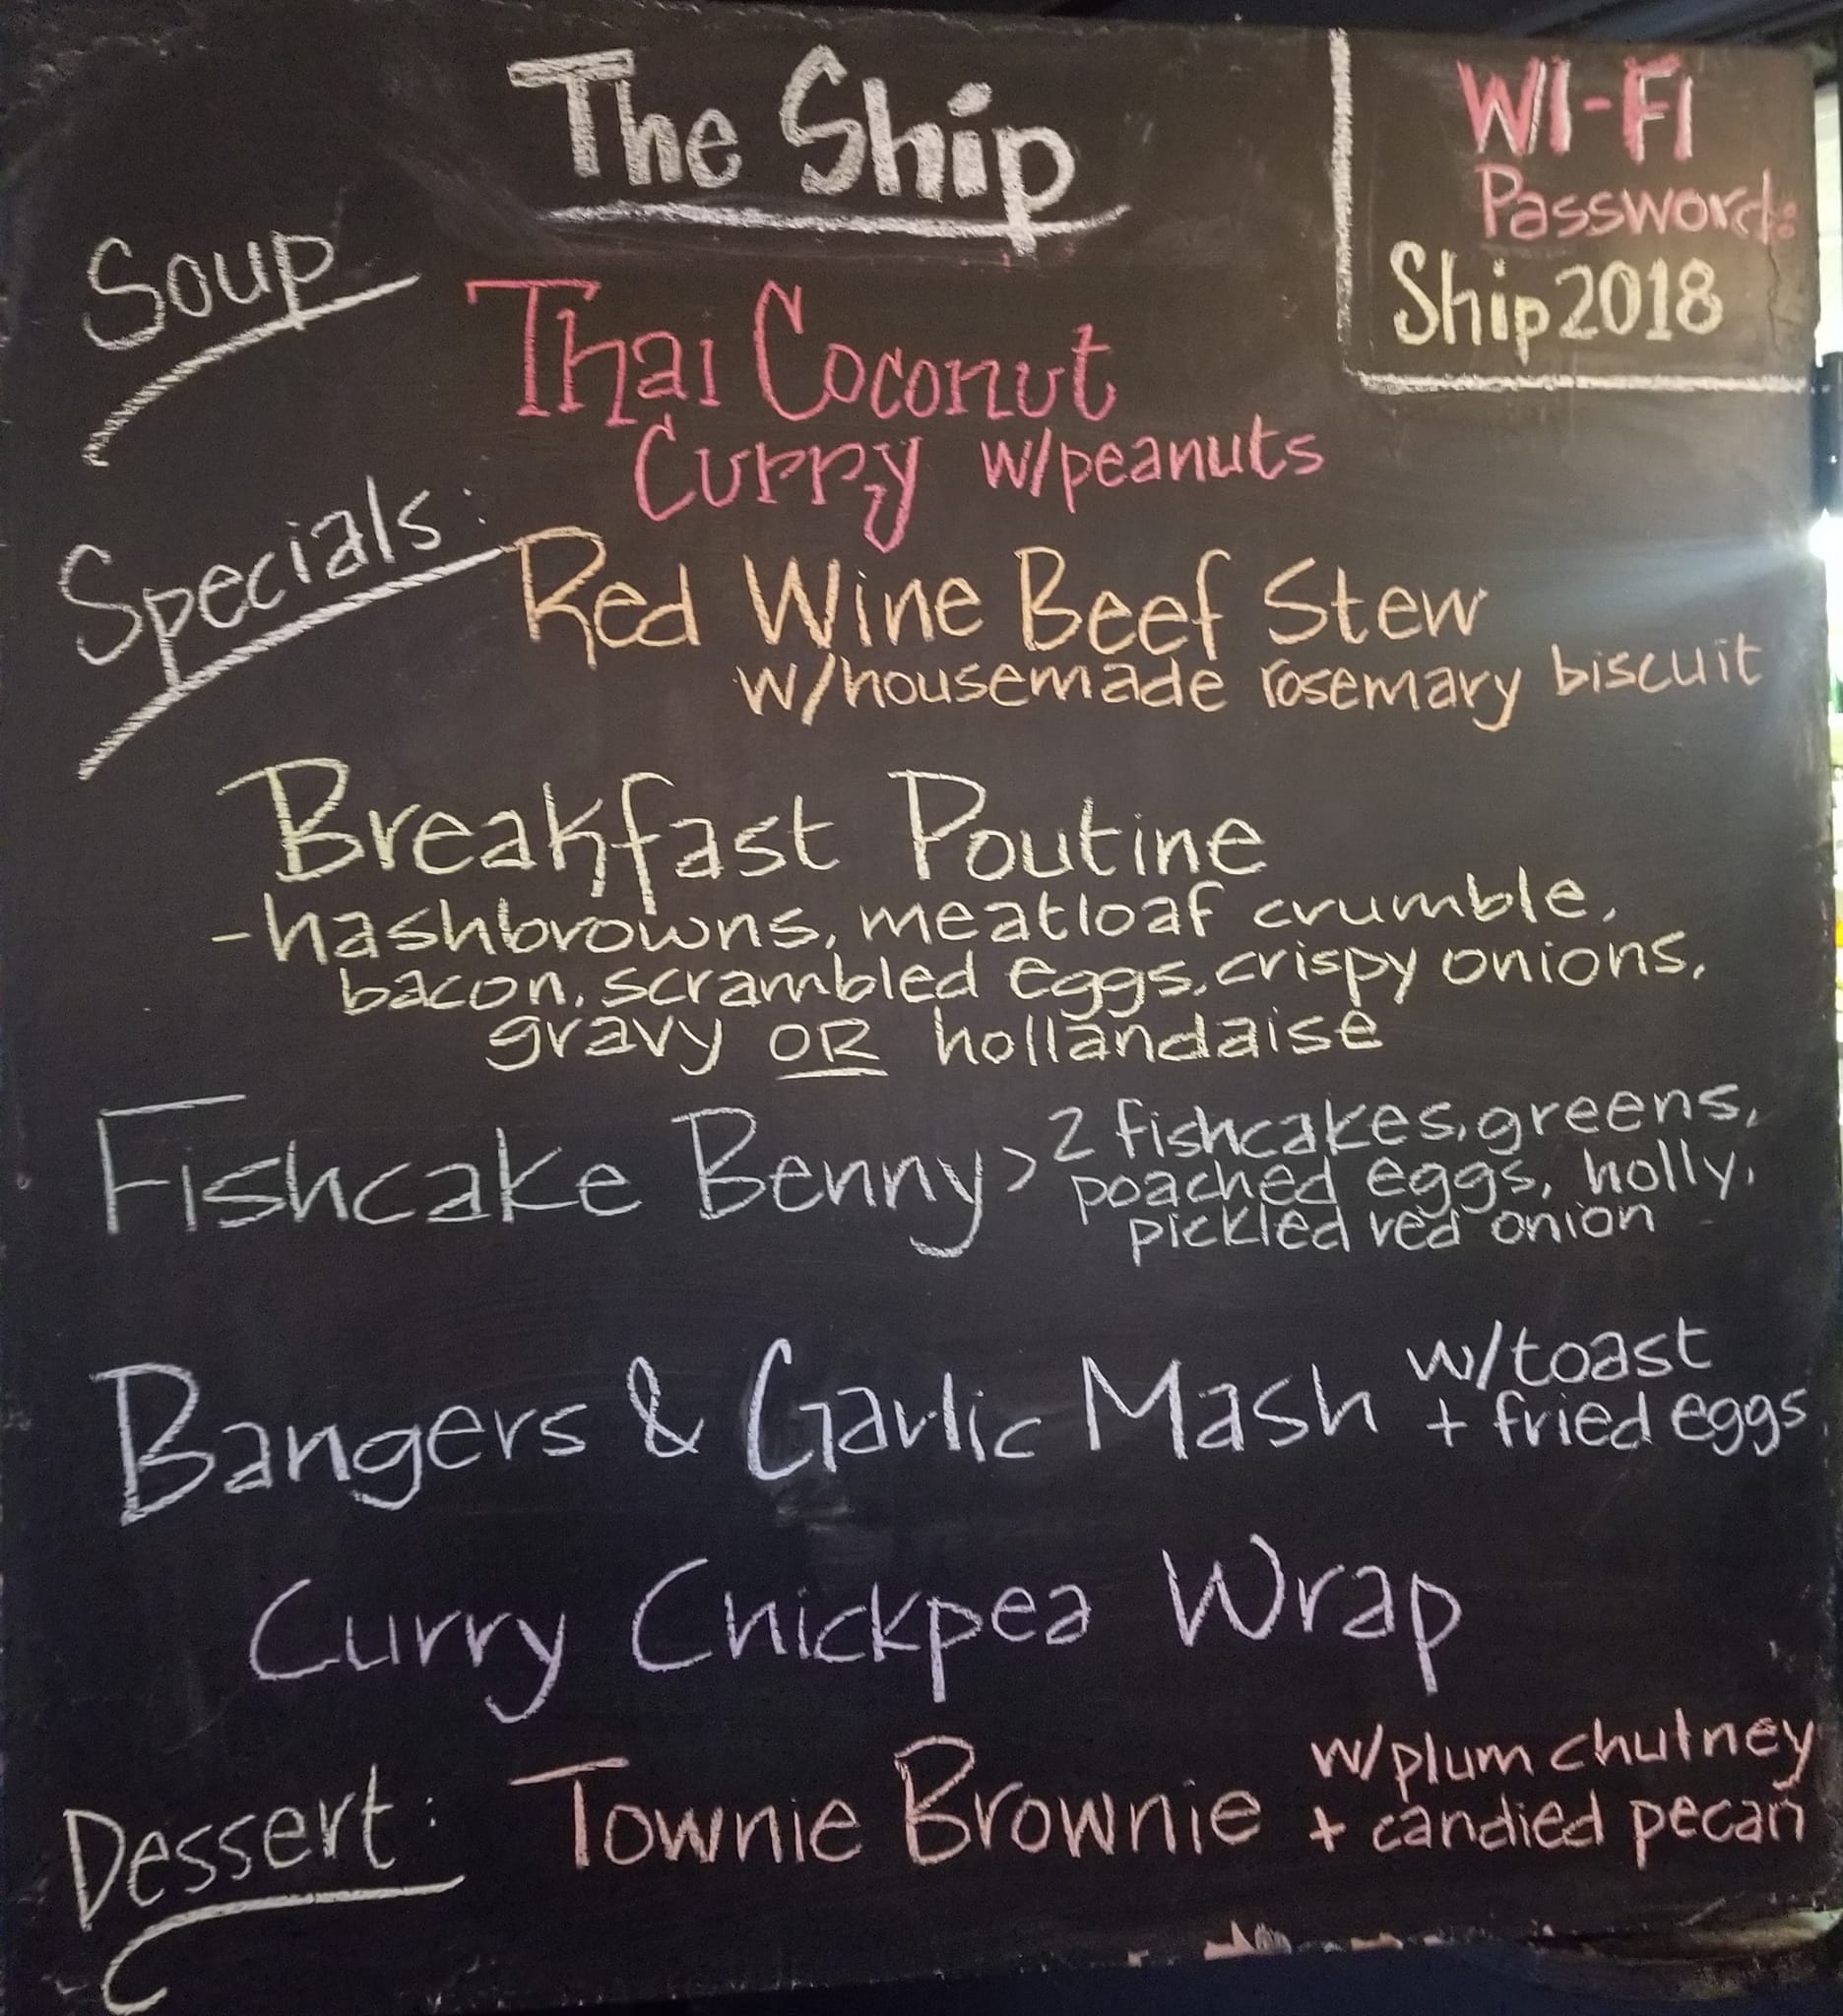 The Ship
WI-FI
Password:
Ship2018
Soup
Thai Coconut
Curry w/peanuts
Specials:
Red Wine Beef Stew
w/housemade rosemary biscuit
Breakfast Poutine
-hashbrowns, meatloaf crumble,
bacon, scrambled eggs, crispy onions,
gravy OR hollandaise
Fishcake Benny > 2 fishcakes, greens,
poached eggs, holly,
pickled red onion
Bangers & Garlic Mash w/toast
+ fried eggs
Curry Chickpea Wrap
Dessert: Townie Brownie w/plum chutney
+ candied pecan